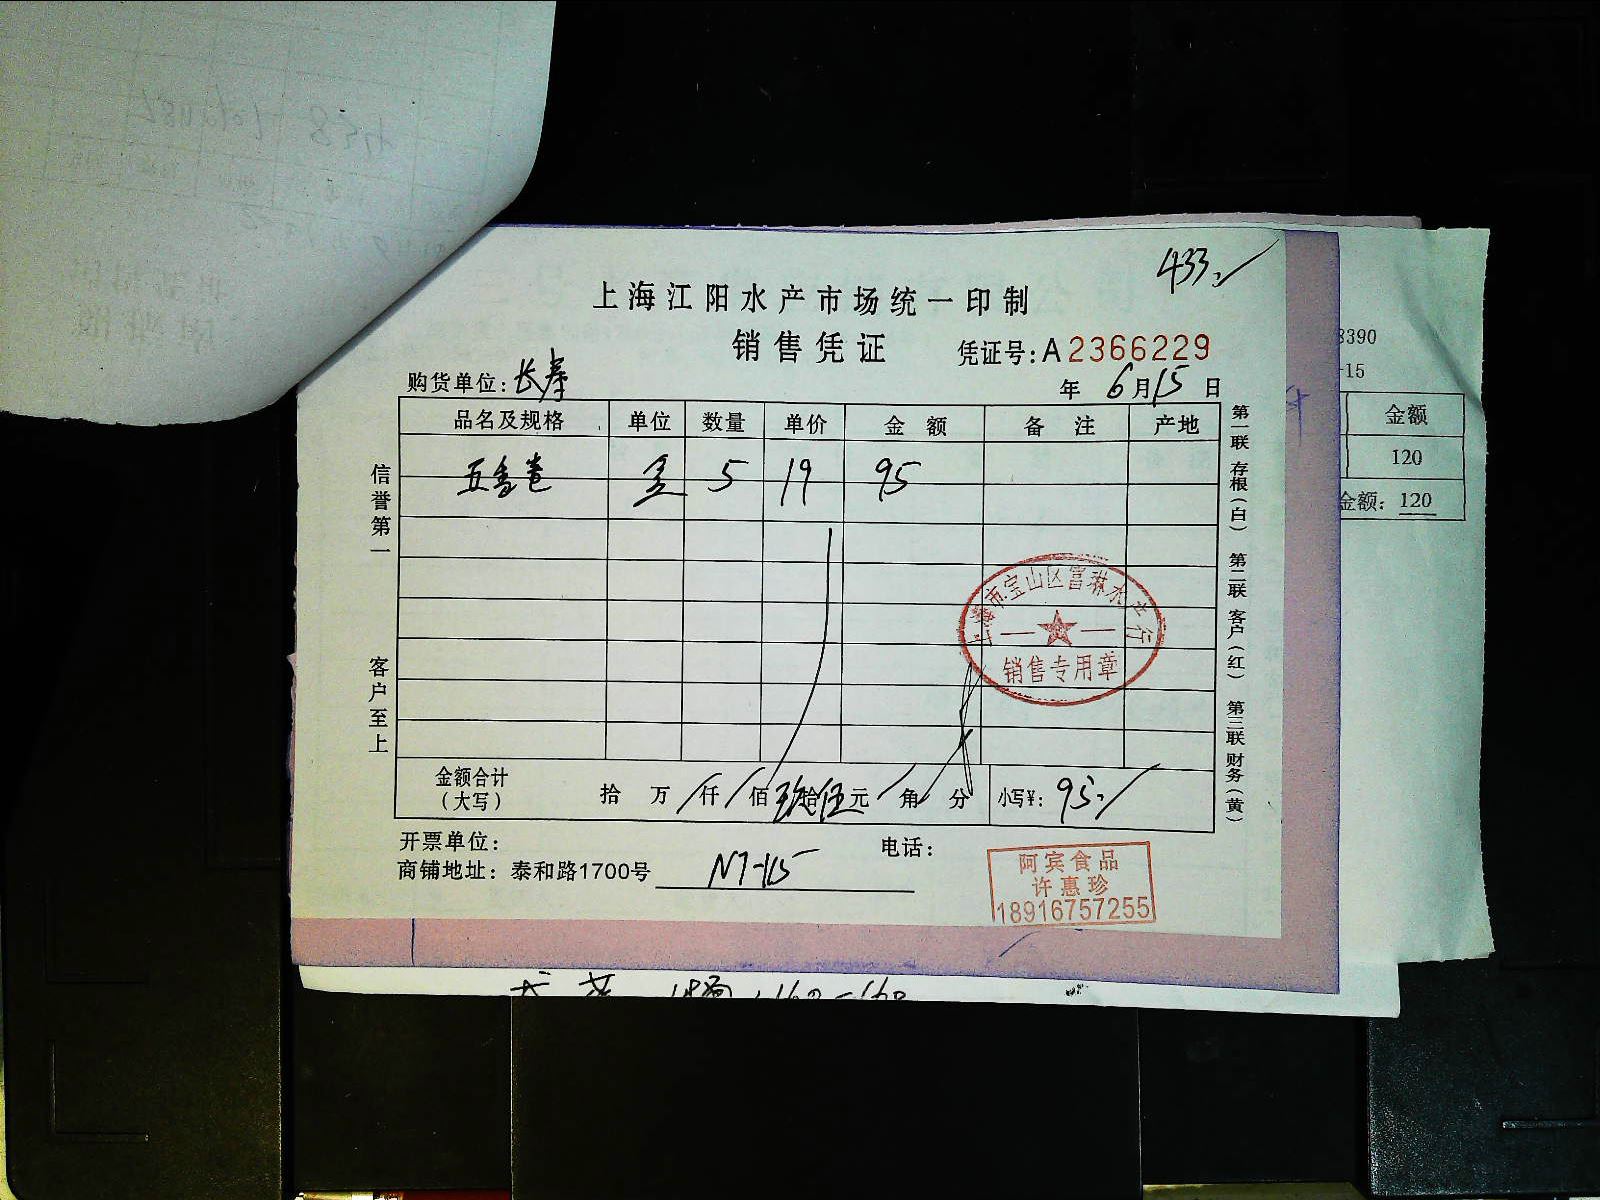 433.
上海江阳水产市场统一印制
销售凭证 凭证号:A2366229
购货单位:长寿 年 6月15日
品名及规格 单位 数量 单价 金额 备注 产地
五香卷 5 19 95
信誉第一
客户至上
金额合计（大写） 拾 万 仟 佰 玖拾伍元 角 分 小写¥:95.
开票单位: 电话:
商铺地址: 泰和路1700号 N7-115
第一联 存根(白) 第二联 客户(红) 第三联 财务(黄)
上海市宝山区富琳水产行
销售专用章
阿宾食品
许惠珍
18916757255
8390
-15
金额
120
金额: 120